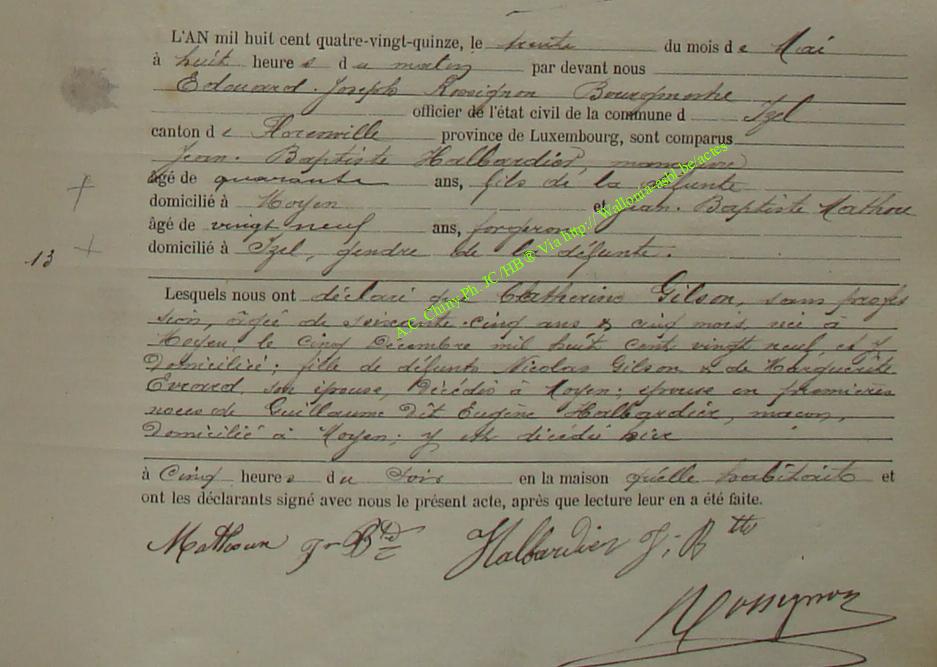 L'AN mil huit cent quatre-vingt-quinze, le trente du mois de Mai
à huit heures du matin par devant nous
Edouard Joseph Rossignon Bourgmestre
officier de l'état civil de la commune d Izel
canton de Florenville province de Luxembourg, sont comparus
Jean-Baptiste Halbardier, manœuvre
âgé de quarante ans, fils de la défunte
domicilié à Moyen et Jean-Baptiste Mathou
âgé de vingt neuf ans, forgeron
13 domicilié à Izel, gendre de la défunte.
Lesquels nous ont déclaré que Catherine Gilson, sans profes
sion, âgée de soixante-cinq ans & cinq mois, née à
Moyen, le cinq Décembre mil huit cent vingt neuf, et y
Domiciliée; fille de défunts Nicolas Gilson & de Marguerite
Evrard, son épouse, décédés à Moyen; épouse en premières
noces de Guillaume dit Eugène Halbardier, maçon,
Domicilié à Moyen; y est décédée hier
à Cinq heures du Soir en la maison qu'elle habitait et
ont les déclarants signé avec nous le présent acte, après que lecture leur en a été faite.
Mathoux J-Bte Halbardier J; Btte
Rossignon
A.C. Chiny Ph. JC/HB ® Via http://Wallonia-asbl.be/actes